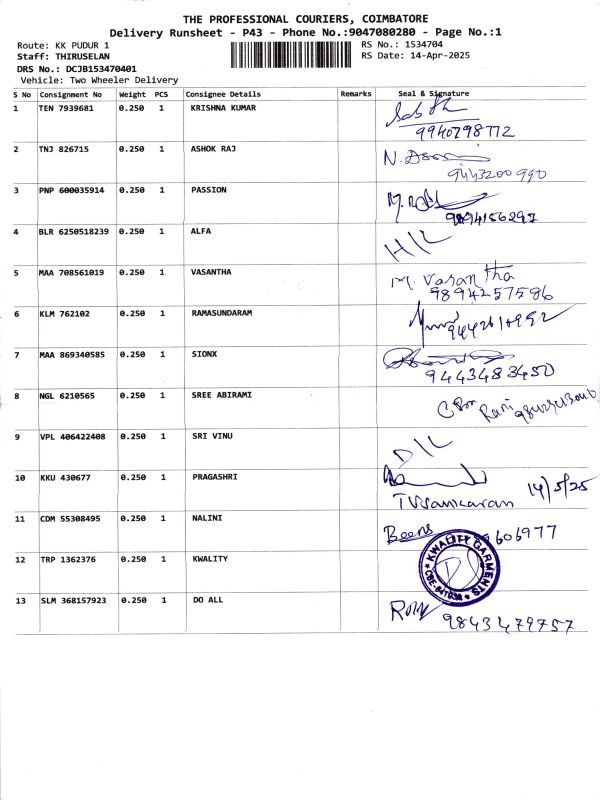 THE PROFESSIONAL COURIERS, COIMBATORE
Delivery Runsheet - P43 - Phone No.:9047080280 - Page No.:1
Route: KK PUDUR 1
RS No.: 1534704
Staff: THIRUSELAN
RS Date: 14-Apr-2025
DRS No.: DCJB153470401
Vehicle: Two Wheeler Delivery
S No Consignment No Weight PCS Consignee Details Remarks Seal & Signature
1 TEN 7939681 0.250 1 KRISHNA KUMAR
9940798772
2 TNJ 826715 0.250 1 ASHOK RAJ
9443200990
3 PNP 600035914 0.250 1 PASSION
9894156297
4 BLR 6250518239 0.250 1 ALFA
H/L
5 MAA 708561019 0.250 1 VASANTHA M. Vasantha
9894257586
6 KLM 762102 0.250 1 RAMASUNDARAM
7 MAA 869340585 0.250 1 SIONX
9443483450
8 NGL 6210565 0.250 1 SREE ABIRAMI
Rani
9 VPL 406422408 0.250 1 SRI VINU
D/L
10 KKU 430677 0.250 1 PRAGASHRI 14/5/25
TVSankaran
11 CDM 55308495 0.250 1 NALINI
606977
12 TRP 1362376 0.250 1 KWALITY KWALITY GARMENTS
13 SLM 368157923 0.250 1 DO ALL
9843479757